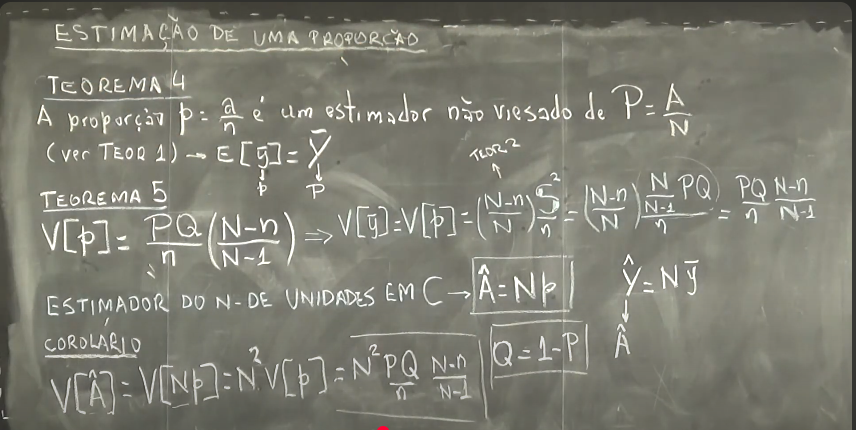 ESTIMAÇÃO DE UMA PROPORÇÃO
TEOREMA 4
A proporção p = a/n é um estimador não viesado de P = A/N
(ver TEOR 1) → E[ȳ] = Ȳ
↓ p ↓ P
TEOR 2 ↑
TEOREMA 5
V[p] = PQ/n (N-n/N-1) ⇒ V[ȳ] = V[p] = (N-n/N) S²/n = (N-n/N) (N/N-1 PQ)/n = PQ/n N-n/N-1
ESTIMADOR DO Nº DE UNIDADES EM C → Â = Np Ŷ = Nȳ
↓ Â
COROLÁRIO
V[Â] = V[Np] = N² V[p] = N² PQ/n N-n/N-1 Q = 1-P